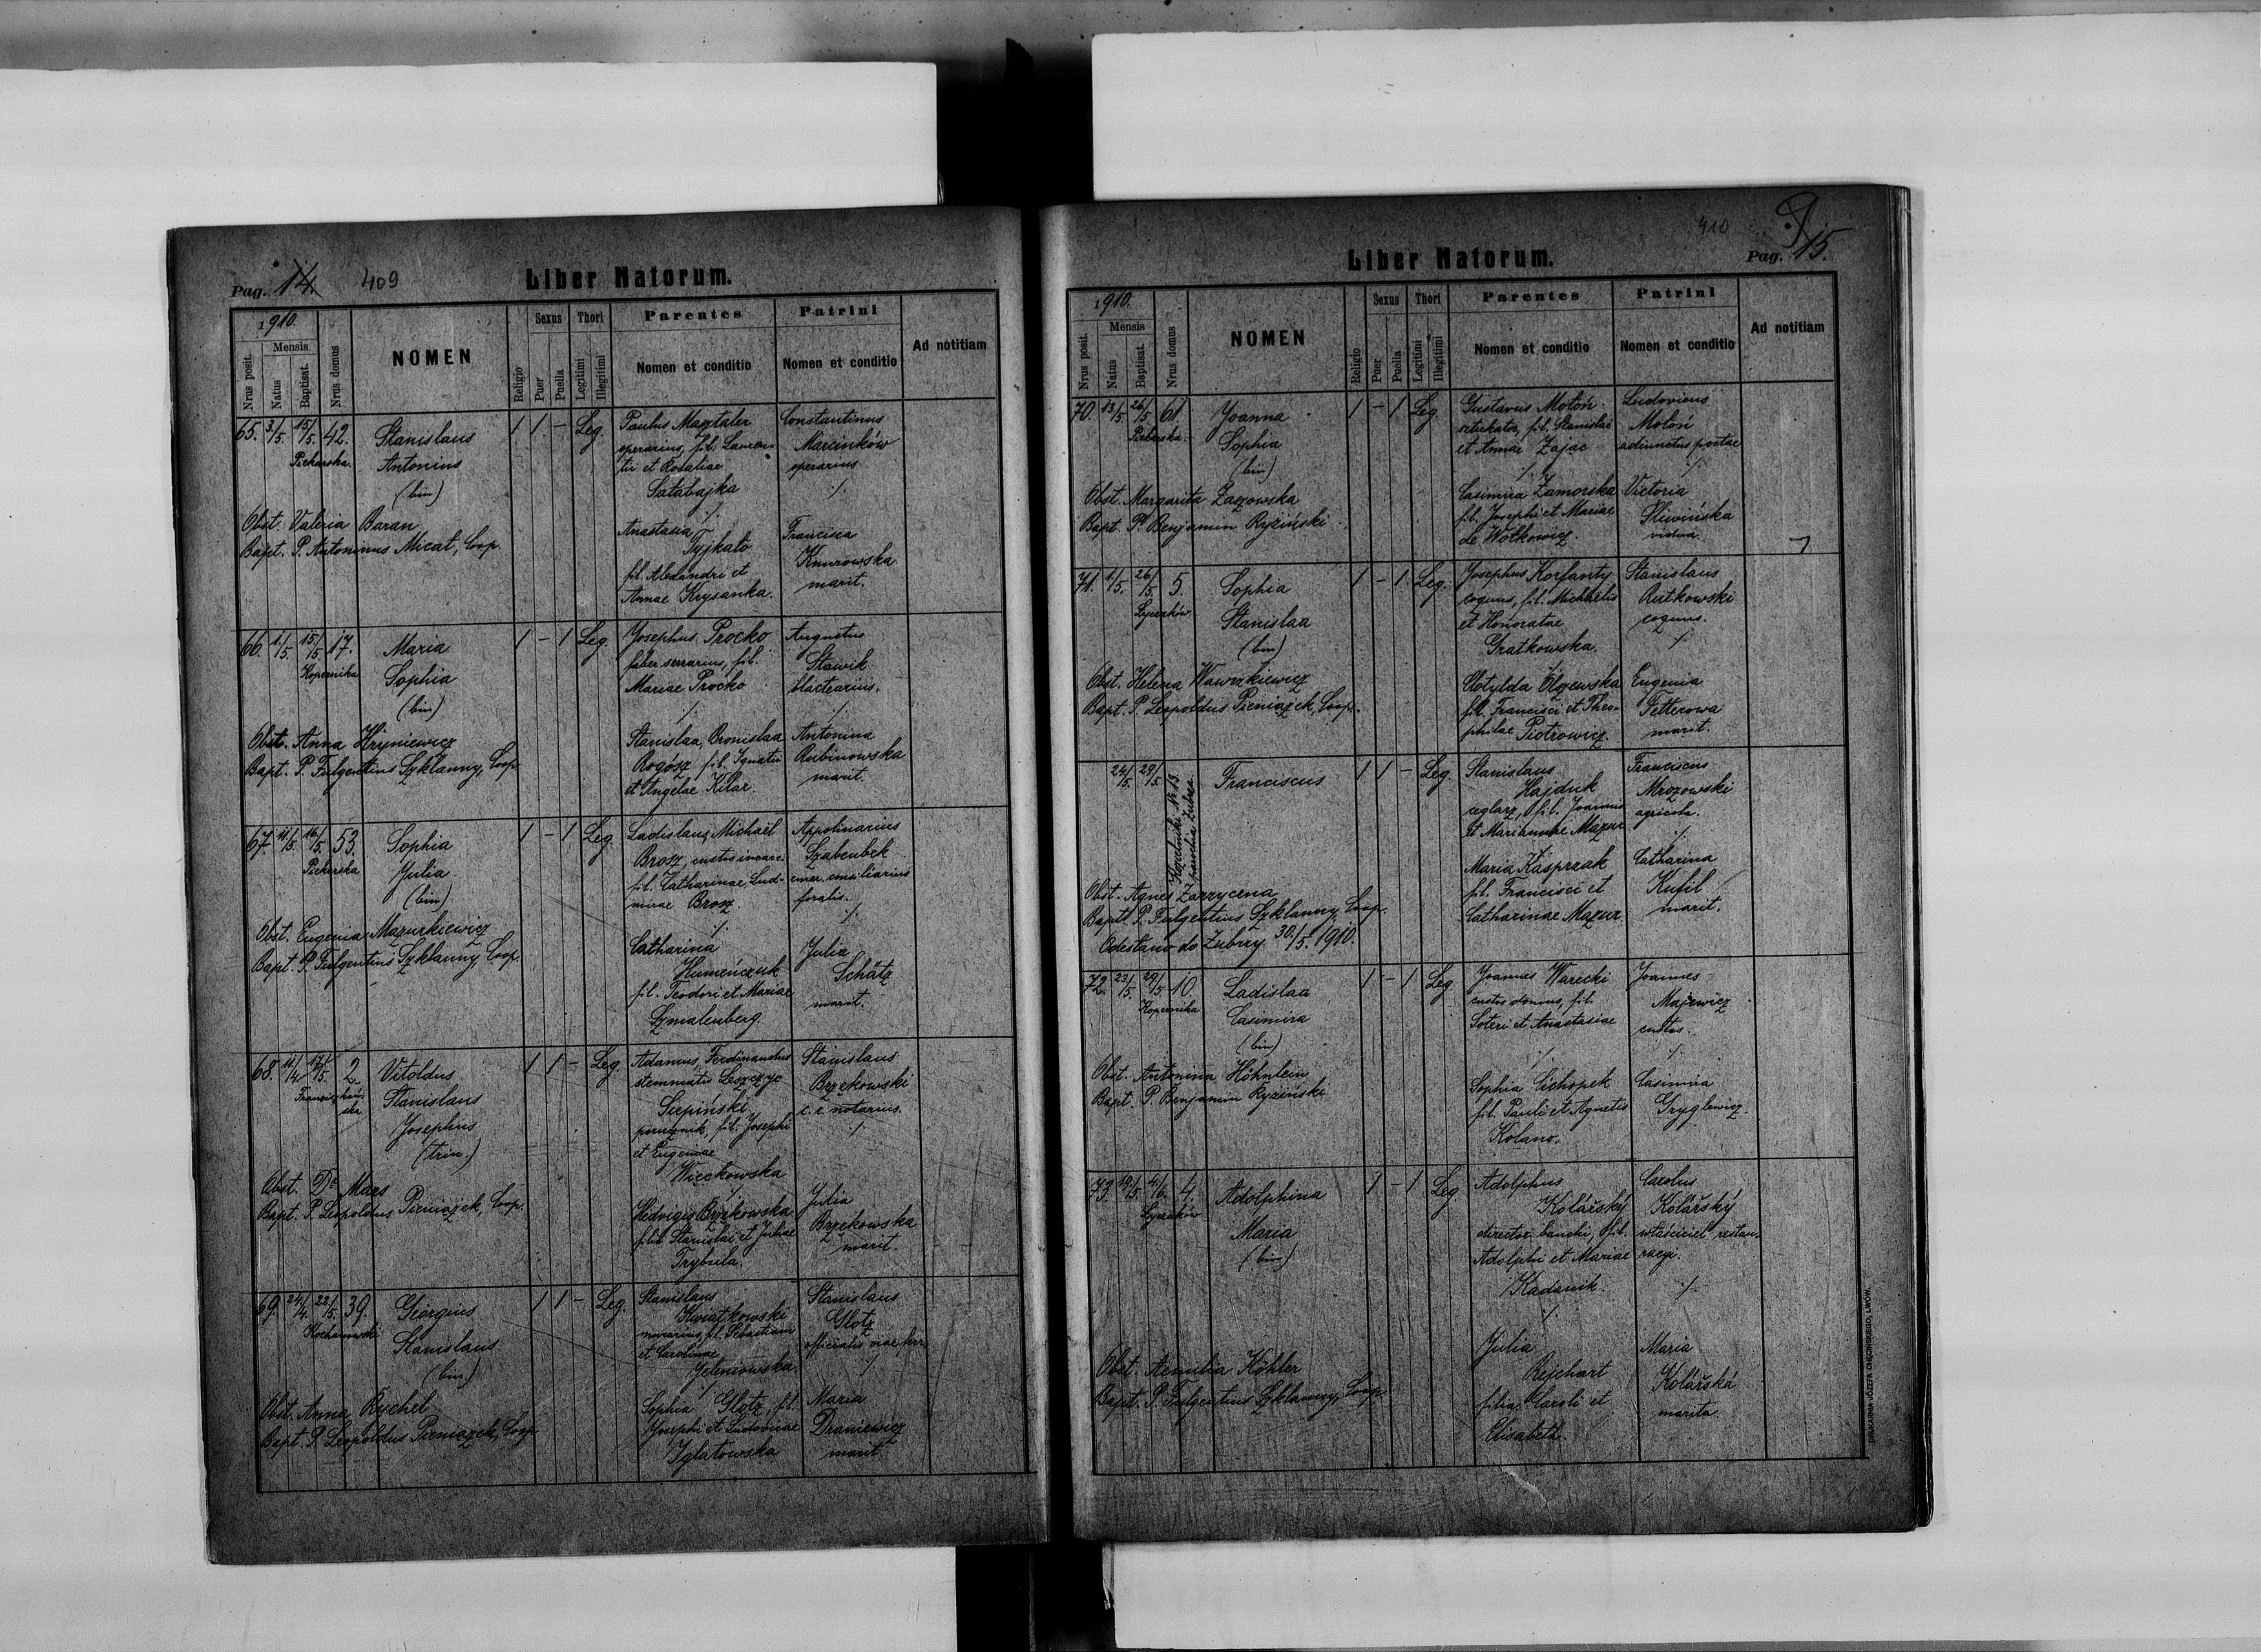 Pag. 14. 409 Liber Natorum.
1910.
Nrus posit.
Mensis
Natus
Baptisat.
Nrus domus
NOMEN
Religio
Sexus
Puer
Puella
Thori
Legitimi
Illegitimi
Parentes
Nomen et conditio
Patrini
Nomen et conditio
Ad notitiam
65. 3/5. 15/5. 42.
Piekarska.
Stanislaus
Antonius
(bin)
1 1 - Leg.
Obst. Valeria Baran
Bapt. P. Antoninus Micat, Coop.
Paulus Magtaler
operarius, fil. Lauren-
tii et Rosaliae
Satabajka
./.
Anastasia
Tyjkało
fil. Alexandri et
Annae Krysanka.
Constantinus
Marcinków
operarius
./.
Francisca
Knurowska
marit.
66. 1/5. 15/5 17.
Kopernika
Maria
Sophia
(bin)
1 - 1 Leg.
Obst. Anna Hryniewicz
Bapt. P. Fulgentius Szklanny, Coop.
Josephus Procko
faber serrarius, fil.
Mariae Procko
./.
Stanislaa, Bronislaa
Rogósz fil. Ignatii
et Angelae Kilar.
Augustus
Sławik
blactearius.
./.
Antonina
Rubinowska
marit.
67. 11/5. 16/5. 53.
Piekarska
Sophia
Julia
(bin)
1 - 1 Leg.
Obst. Eugenia Mazurkiewicz
Bapt. P. Fulgentius Szklanny, Coop.
Ladislaus, Michaël
Brosz, custos incarc.
fil. Catharinae, Lud-
mirae Brosz.
./.
Catharina
Humeńczuk
fil. Teodori et Mariae
Szmalenberg.
Appolinarius
Szabenbek
emer. consiliarius
foralis.
./.
Julia
Schätz
marit.
68. 11/4. 17/5. 2.
Franciszkań-
ska
Vitoldus
Stanislaus
Josephus
(trin.)
1 1 - Leg.
Obst. Dr Mars
Bapt. P. Leopoldus Pieniążek, Coop.
Adamus, Ferdinandus
stemmatis Leszczyc
Sierpiński
porucznik, fil. Josephi
et Eugeniae
Więckowska
./.
Hedvigis Brzękowska
filia Stanislai et Juliae
Trybula.
Stanislaus
Brzękowski
c. r. notarius.
./.
Julia
Brzękowska
marit.
69. 24/4. 22/5. 39.
Kochanowski
Georgius
Stanislaus
(bin)
1 1 - Leg.
Obst. Anna Rychel
Bapt. P. Leopoldus Pieniążek, Coop.
Stanislaus
Kwiatkowski
murarius, fil. Sebastiani
et Carolinae
Jeleniowska.
./.
Sophia Glotz, fil.
Josephi et Ludovicae
Iglatowska
Stanislaus
Glotz
officialis viae ferr.
./.
Maria
Draniewicz
marit.
410 9
Liber Natorum. Pag. 15.
1910.
Nrus posit.
Mensis
Natus
Baptisat.
Nrus domus
NOMEN
Religio
Sexus
Puer
Puella
Thori
Legitimi
Illegitimi
Parentes
Nomen et conditio
Patrini
Nomen et conditio
Ad notitiam
70. 13/5 26/5 61.
Piekarska.
Joanna
Sophia
(bin)
1 - 1 Leg.
Obst. Margarita Zaszowska
Bapt. P. Benjamin Ryziński
Gustavus Motoń
sztukator, fil. Stanislai
et Annae Zając
./.
Casimira Zamorska
fil. Josephi et Mariae
de Wołkowicz.
Ludovicus
Motoń
adiunctus postae
./.
Victoria
Śliwińska
vidua.
71. 1/5. 26/5. 5.
Łyczaków
Sophia
Stanislaa
(bin)
1 - 1 Leg.
Obst. Helena Wawrzkiewicz
Bapt. P. Leopoldus Pieniążek, Coop.
Josephus Korfanty
coquus, fil. Michaëlis
et Honoratae
Gratkowska.
./.
Clotylda Olszewska
fil. Francisci et Theo-
philae Piotrowicz.
Stanislaus
Rutkowski
coquus.
./.
Eugenia
Fetterowa
marit.
24/5. 29/5.
Kozielniki № 13.
parochia Zubrza
Franciscus
1 1 - Leg.
Obst. Agnes Zarzyczna
Bapt. P. Fulgentius Szklanny, Coop.
Odesłano do Zubrzy 30/5. 1910.
Stanislaus
Hajduk
ceglarz, fil. Joannis
et Mariannae Mazur
./.
Maria Kasprzak
fil. Francisci et
Catharinae Mazur.
Franciscus
Mrozowski
agricola.
./.
Catharina
Kufil
marit.
72. 23/5. 29/5 10.
Kopernika
Ladislaa
Casimira
(bin)
1 - 1 Leg.
Obst. Antonina Höhnlein
Bapt. P. Benjamin Ryziński
Joannes Warecki
custos domus, fil.
Soteri et Anastasiae
./.
Sophia Cichopek
fil. Pauli et Agnetis
Kolano.
Joannes
Majewicz
custos.
./.
Casimira
Gryglewicz.
73. 19/5. 4/6. 4.
Łyczaków
Adolphina
Maria
(bin)
1 - 1 Leg.
Obst. Aemilia Köhler
Bapt. P. Fulgentius Szklanny, Coop.
Adolphus
Kolářský
director banchi, fil.
Adolphi et Mariae
Kadanik.
./.
Julia
Rejchart
filia Caroli et
Elisabeth.
Carolus
Kolářský
właściciel restau-
racyi.
./.
Maria
Kolářská
marita.
DRUKARNIA JÓZEFA CHĘCIŃSKIEGO, LWÓW.